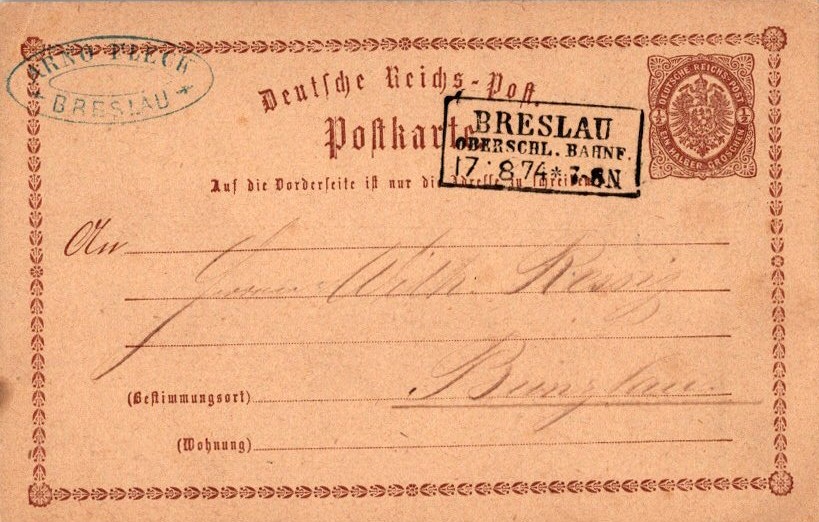 ARNO FLECK
* BRESLAU *
Deutsche Reichs-Post.
Postkarte
DEUTSCHE REICHS-POST
½ ½
EIN HALBER GROSCHEN
BRESLAU
OBERSCHL. BAHNF.
17 8 74 * 7-8N
Auf die Vorderseite ist nur die Adresse zu schreiben.
An
Herrn Wilh.
Bunzlau
(Bestimmungsort)
(Wohnung)